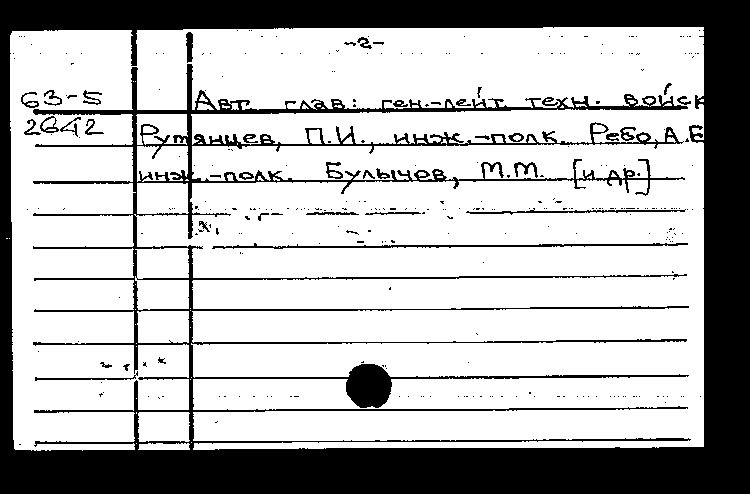 -2-
63-5 Авт. глав: ген.-лейт техн. войск
2642 Румянцев, П.И., инж.-полк. Ребо, А.Е
инж.-полк. Булычев, М.М. [и др.]